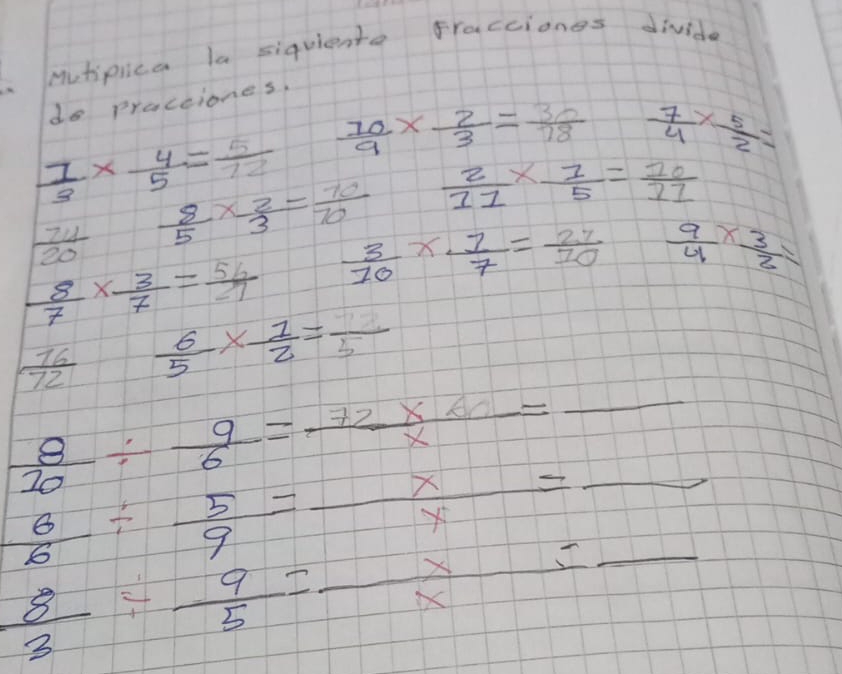 Mutiplica la siquiente Fracciones divide
de Pracciones.
1/3 × 4/5 = 5/12 10/9 × 2/3 = 30/18 7/4 × 5/2 =
14/20 8/5 × 2/3 = 10/10 2/11 × 1/5 = 10/11
8/7 × 3/7 = 56/21 3/10 × 1/7 = 21/10 9/4 × 3/2 =
16/12 6/5 × 1/2 = 12/5
8/10 ÷ 9/6 = 72 × 60/×  =
6/6 ÷ 5/9 = ×/× =
8/3 ÷ 9/5 = ×/× =